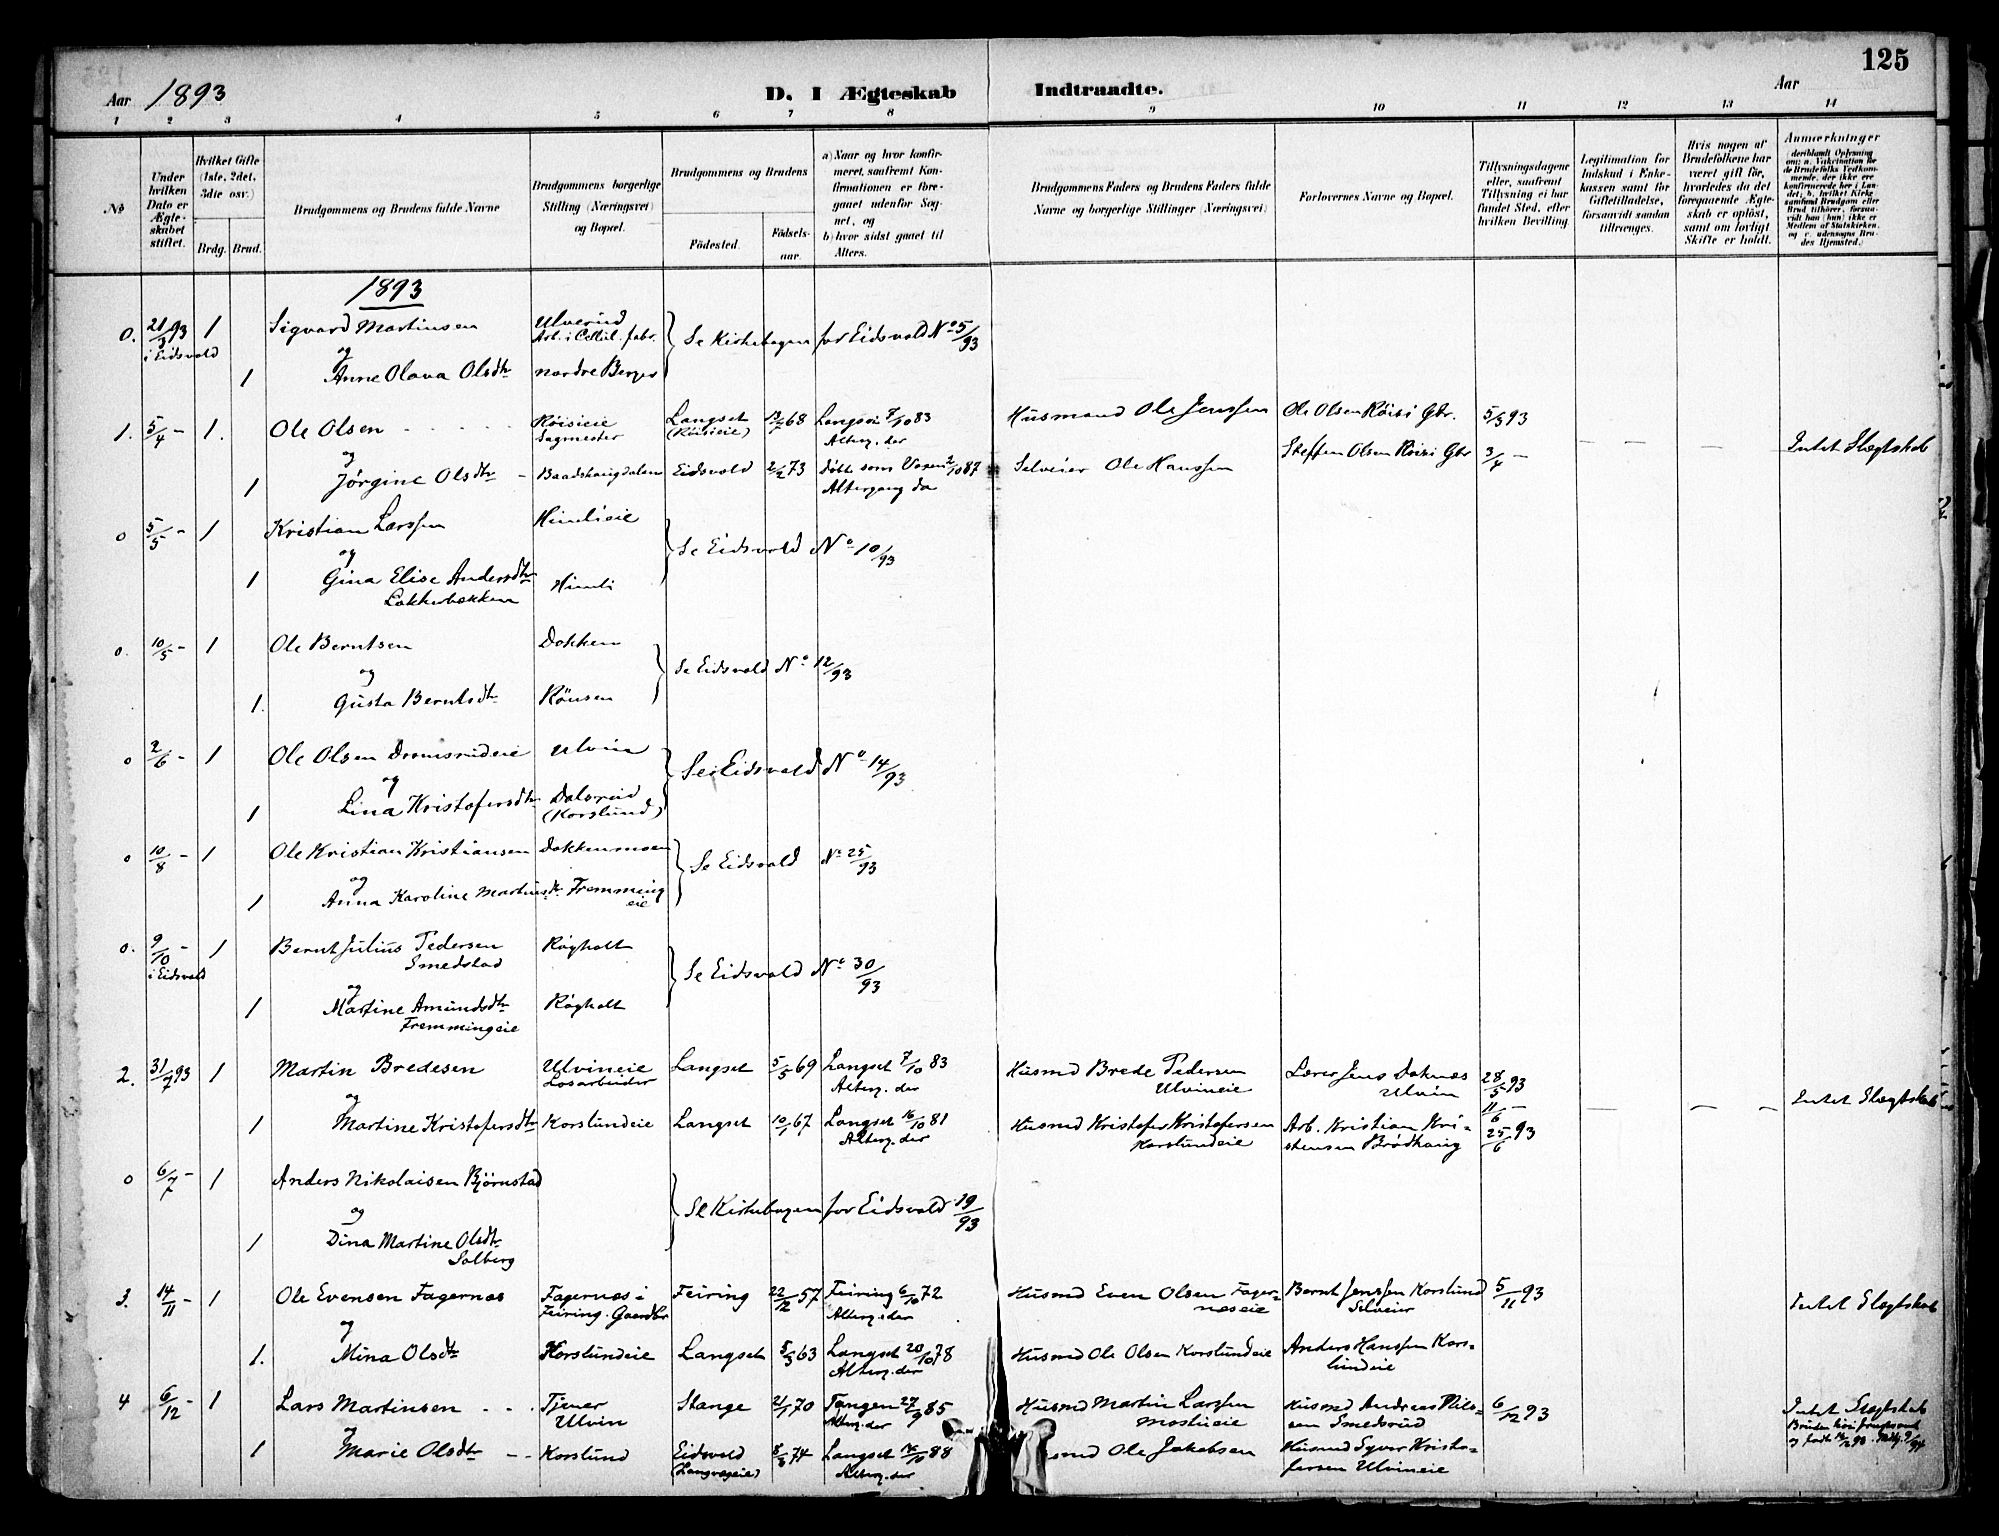 125
Aar 1893
D. I Ægteskab Indtraadte.
Aar
1 2 3 4 5 6 7 8 9 10 11 12 13 14
No
Under hvilken Dato er Ægteskabet stiftet.
Hvilket Gifte (1ste, 2det, 3die osv.)
Brdg. Brud.
Brudgommens og Brudens fulde Navne
Brudgommens borgerlige Stilling (Næringsvei) og Bopæl.
Brudgommens og Brudens
Födested. Födselsaar.
a) Naar og hvor konfirmeret, saafremt Konfirmationen er foregaaet udenfor Sognet, og
b) hvor sidst gaaet til Alters.
Brudgommens Faders og Brudens Faders fulde Navne og borgerlige Stillinger (Næringsvei)
Forlovernes Navne og Bopæl.
Tillysningsdagene eller, saafremt Tillysning ei har fundet Sted, efter hvilken Bevilling
Legitimation for Indskud i Enkekassen samt for Giftetilladelse, forsaavidt saadan tiltrænges.
Hvis nogen af Brudefolkene har været gift før, hvorledes da det foregaaende Ægteskab er opløst, samt om lovligt Skifte er holdt.
Anmærkninger
(deriblandt Oplysning om: a. Vakcination for de Brudefolks Vedkommende, der ikke ere konfirmerede her i Landet; b. hvilket Kirkesamfund Brudgom eller Brud tilhörer, forsaavidt han (hun) ikke er Medlem af Statskirken, og c. udensogns Brudes Hjemsted.)
1893
0. 21/3 93 1 Sigvard Martinsen Ulverud
i Eidsvold Arb. i Cellul. fabr. Se Kirkebogen for Eidsvold No 5/93
og
1 Anne Olava Olsdtr nordre Berger
1. 5/4 - 1. Ole Olsen Röisieie Langset 68 Langset 7/10 83 Husmand Ole Jenssen Ole Olsen Röisi Gbr. 5/3 93
Sagmester (Röisieie) Alterg. der
og Steffen Olsen Röisi Gbr 3/4 - Intet Slægtskab
1 Jörgine Olsdtr - Baadshaugdalen Eidsvold 2/2 73 2/10 87 Selveier Ole Hanssen
Altergang da
0 5/5 - 1 Kristian Larssen Himlieie
og Se Eidsvold No 10/93
1 Gina Elise Andersdtr Himli
Løkkebækken
0. 10/5 - 1 Ole Berntsen Dokken
og Se Eidsvold No 12/93
1. Gusta Berntsdtr Rönsen
0 2/6 - 1 Ole Olsen Ulvin
og Se Eidsvold No 14/93
1 Lina Kristofersdtr Dalsrud
(Korslund)
0 10/8 - 1 Ole Kristian Kristiansen Dokkenmoen
og Se Eidsvold No 25/93
1 Anna Karoline Martinsdtr Fremmingeie
0. 9/10 - 1 Bernt Julius Pedersen Rögholt
i Eidsvold Smedstad
og Se Eidsvold No 30/93
1 Martine Amundsdtr Rögholt
Fremmingeie
2. 31/7 93 1 Martin Bredesen Ulvineie Langset 5/5 69 Langset 7/10 83 Husmd Brede Pedersen Lærer Jens Doknæs 28/5 93
Løsarbeider Alterg. der Ulvineie Ulvin
og 11/6 - Intet Slægtskab
1 Martine Kristofersdtr Korslundeie Langset 10/1 67 Langset 16/10 81 Husmd Kristofer Kristofersen Arb. Kristian Kri- 25/6 93
Alterg. der Korslundeie stensen Brødhaug
0 6/7 - 1 Anders Nikolaisen Bjørnstad
og Se Kirkebogen for Eidsvold 19/93
1 Dina Martine Olsdtr
Solberg
3. 14/11 - 1 Ole Evensen Fagernæs Fagernæs i Feiring 22/12 57 Feiring 6/10 72 Husmd Even Olsen Fager- Bernt Jenssen Korslund 5/11 93
Feiring. Gaardbr Alterg. der næseie Selveier Intet Slægtskab
og
1. Mina Olsdtr Korslundeie Langset 5/3 63 Langset 20/10 78 Husmd Ole Olsen Korslundeie Anders Hanssen Kors-
Alterg. der lundeie
4 6/12 - 1 Lars Martinsen Tjener Stange 21/1 70 Tangen 27/9 85 Husmd Martin Larssen Husmd Andreas Nils- 6/12 93 Intet Slægtskab
Ulvin Alterg. der Mostueie sen Smedsrud
og
1 Marie Olsdtr Korslund Eidsvold 8/3 74 Langset 14/10 88 Ole Jakobsen Husmd Syver Kristo-
Alterg. der fersen Ulvineie